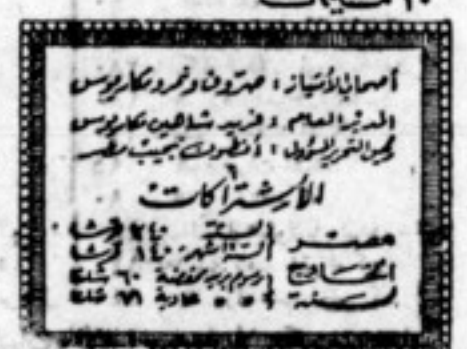 أصحاب الأمتياز : صروف ونمر ومكاريوس
المدير العام : فريد شاهين مكاريوس
رئيس التحرير المسؤول : أنطون نجيب مطر
الأشتراكات
مصر السنة ٢٤٠ قرشا
الستة اشهر ١٤٠ قرشا
الخارج رسوم بريد مخفضة ٦٠ شلنا
لسنة " " عادية ٧٦ شلنا